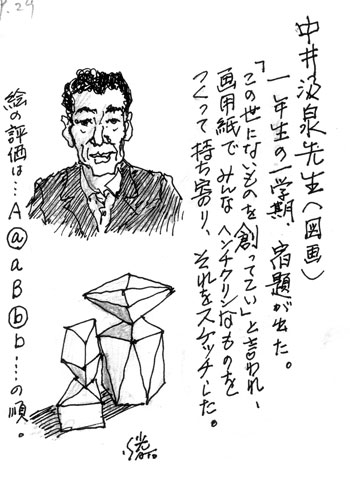 P.29
中井汲泉先生(図画)
一年生の一学期、宿題が出た。
「この世にないものを創ってこい」と言われ、
画用紙でみんなヘンチクリンなものを
つくって持ち寄り、それをスケッチした。
絵の評価は…A ⓐ a B ⓑ b……の順。